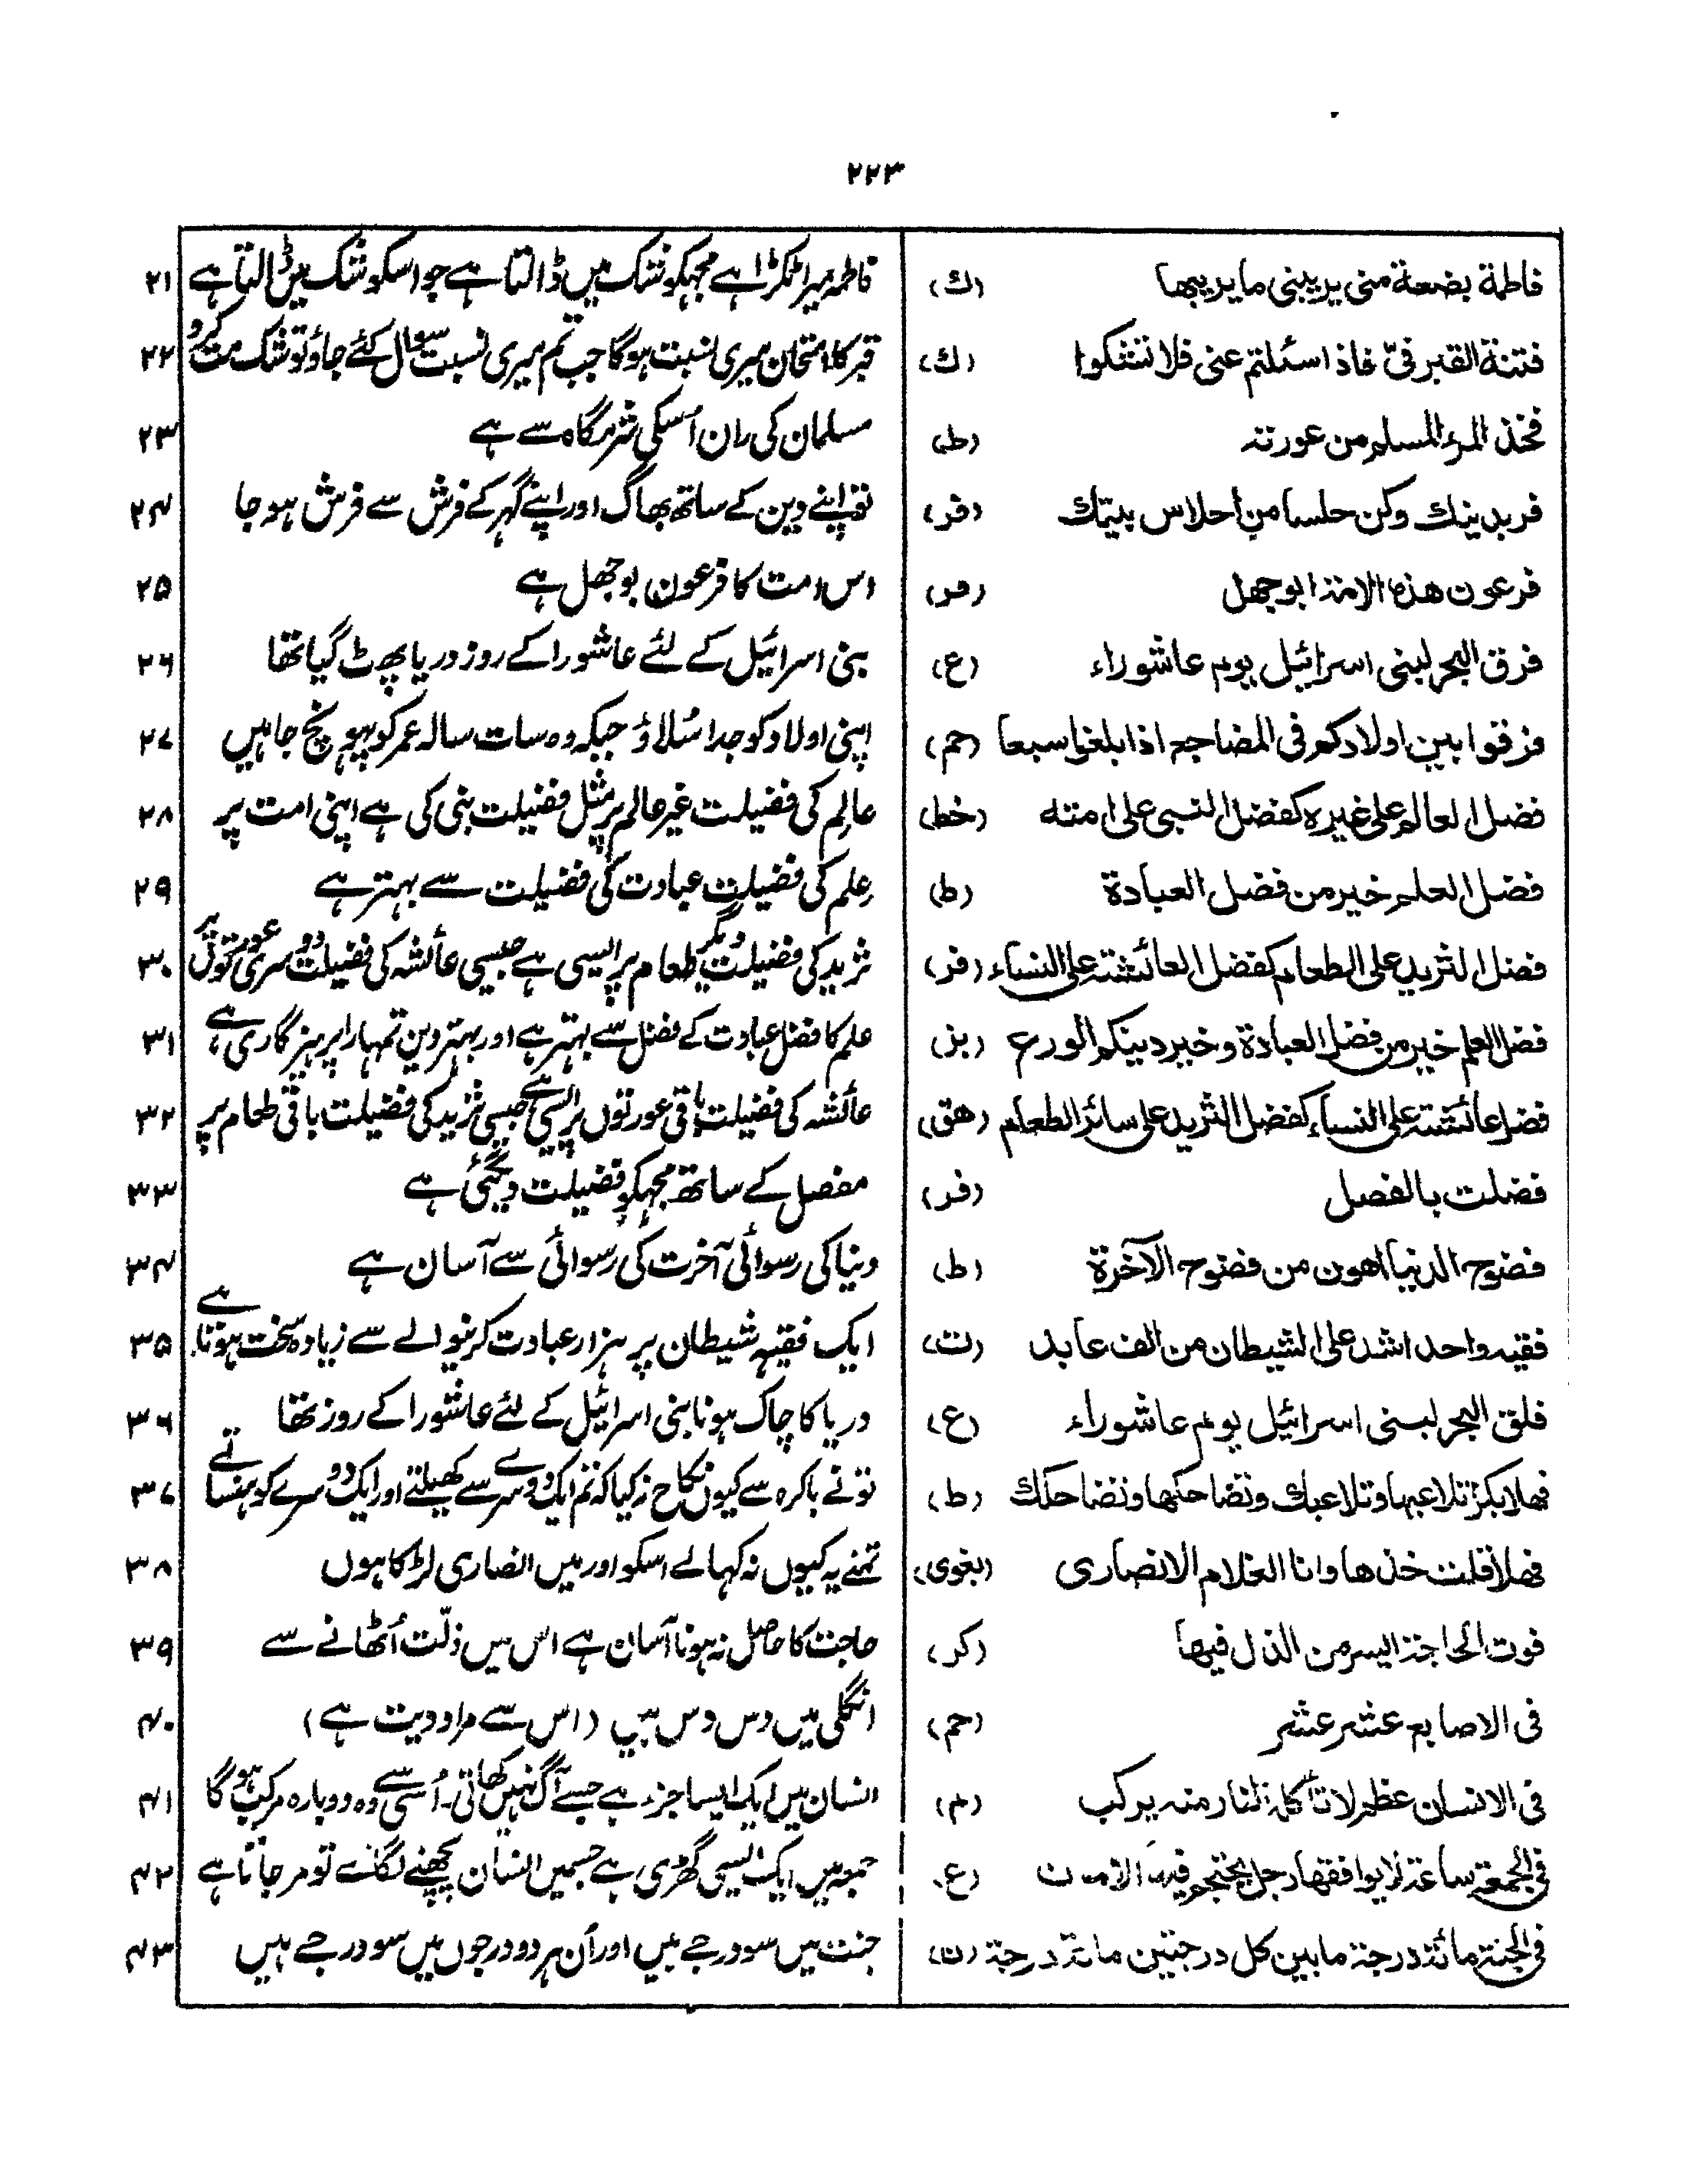 ۲۲۳
فاطمة بضعة منی یریبنی ما یریبها (ك) فاطمہ میرا ٹکڑا ہے مجہکو شک میں ڈالتا ہے جو اسکو شک میں ڈالتا ہے ۲۱
فتنة القبر فیّ فاذا سئلتم عنی فلا تشکوا (ك) قبر کا امتحان میری نسبت ہوگا جب تم میری نسبت سوال کئے جاؤ تو شک مت کرو ۲۲
فخذ المرء المسلم من عورته (ط) مسلمان کی ران اُسکی شرمگاہ سے ہے ۲۳
فر بدینك وکن حلسا من احلاس بیتك (فر) تو اپنے دین کے ساتھ بھاگ اور اپنے گہر کے فرش سے فرش ہو جا ۲۴
فرعون هذه الامة ابوجهل (فر) اس امت کا فرعون بوجھل ہے ۲۵
فرق البحر لبنی اسرائیل یوم عاشوراء (ع) بنی اسرائیل کے لئے عاشورا کے روز دریا پھٹ گیا تھا ۲۶
فرقوا بین اولادکم فی المضاجع اذا بلغوا سبعا (حم) اپنی اولاد کو جدا سُلاؤ جبکہ وہ سات سالہ عمر کو پہونچ جاہیں ۲۷
فضل العالم علی غیره کفضل النبی علی امته (خط) عالِم کی فضیلت غیر عالم پر مثل فضیلت بنی کی ہے اپنی امت پر ۲۸
فضل العلم خیر من فضل العبادة (ط) عِلم کی فضیلت عبادت کی فضیلت سے بہتر ہے ۲۹
فضل الثرید علی الطعام کفضل العائشة علی النساء (فر) ثرید کی فضیلت دیگر طعام پر ایسی ہے جیسی عائشہ کی فضیلت دوسری عورتوں پر ۳۰
فضل العلم خیر من فضل العبادة وخیر دینکم الورع (بز) علم کا فضل عبادت کے فضل سے بہتر ہے اور بہتر دین تمہارا پرہیزگاری ہے ۳۱
فضل عائشة علی النساء کفضل الثرید علی سائر الطعام (هق) عائشہ کی فضیلت باقی عورتوں پر ایسی ہے جیسی ثرید کی فضیلت باقی طعام پر ۳۲
فضلت بالفصل (فر) مفصل کے ساتھ مجہکو فضیلت دیگئی ہے ۳۳
فضوح الدنیا اهون من فضوح الآخرة (ط) دنیا کی رسوائی آخرت کی رسوائی سے آسان ہے ۳۴
فقیه واحد اشد علی الشیطان من الف عابد (ت) ایک فقیہ شیطان پر ہزار عبادت کرنیوالے سے زیادہ سخت ہوتا ہے ۳۵
فلق البحر لبنی اسرائیل یوم عاشوراء (ع) دریا کا چاک ہونا بنی اسرائیل کے لئے عاشورا کے روز تھا ۳۶
فهلا بکرًا تلاعبها وتلاعبك وتضاحکها وتضاحكك (ط) تو نے باکرہ سے کیوں نکاح نہ کیا کہ تم ایک دوسرے سے کھیلتے اور ایک دوسرے کو ہنساتے ۳۷
فهلا قلت خذها وانا الغلام الانصاری (بغوی) تمنے یہ کیوں نہ کہا لے اسکو اور میں انصاری لڑکا ہوں ۳۸
فوت الحاجة ایسر من الذل فیها (کر) حاجت کا حاصل نہ ہونا آسان ہے اس میں ذلّت اُٹھانے سے ۳۹
فی الاصابع عشر عشر (حم) انگلی میں دس دس ہیں (اس سے مراد دیت ہے) ۴۰
فی الانسان عظم لا تأکله النار منه یرکب (م) انسان میں ایک ایسا جزء ہے جسے آگ نہیں کھاتی۔ اُسی سے وہ دوبارہ مرکب ہو گا ۴۱
فی الجمعة ساعة لا یوافقها رجل یحتجم فیها الا مات (ع) جمعہ میں ایک ایسی گھڑی ہے جسمیں انسان پچھنے لگائے تو مر جاتا ہے ۴۲
فی الجنة مائة درجة ما بین کل درجتین مائة درجة (ت) جنت میں سو درجے ہیں اور اُن ہر دو درجوں میں سو درجے ہیں ۴۳